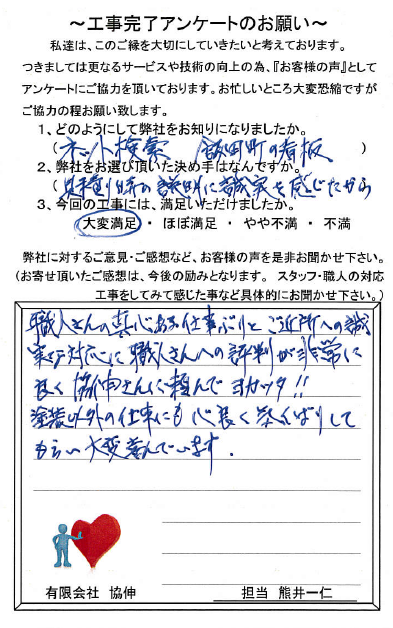 ～工事完了アンケートのお願い～
私達は、このご縁を大切にしていきたいと考えております。
つきましては更なるサービスや技術の向上の為、『お客様の声』として
アンケートにご協力を頂いております。お忙しいところ大変恐縮ですが
ご協力の程お願い致します。
1、どのようにして弊社をお知りになりましたか。
( ネット検索 飯田町の看板 )
2、弊社をお選び頂いた決め手はなんですか。
( 見積り時の説明に誠実を感じたから
3、今回の工事には、満足いただけましたか。
大変満足 ・ ほぼ満足 ・ やや不満 ・ 不満
弊社に対するご意見・ご感想など、お客様の声を是非お聞かせ下さい。
(お寄せ頂いたご感想は、今後の励みとなります。 スタッフ・職人の対応
工事をしてみて感じた事など具体的にお聞かせ下さい。)
職人さんの真心ある仕事ぶりとご近所への誠
実な対応に職人さんへの評判が非常に
良く協伸さんに頼んでヨカッタ!!
塗装以外の仕事にも心良く気くばりして
もらい大変喜んでいます.
有限会社 協伸
担当 熊井一仁